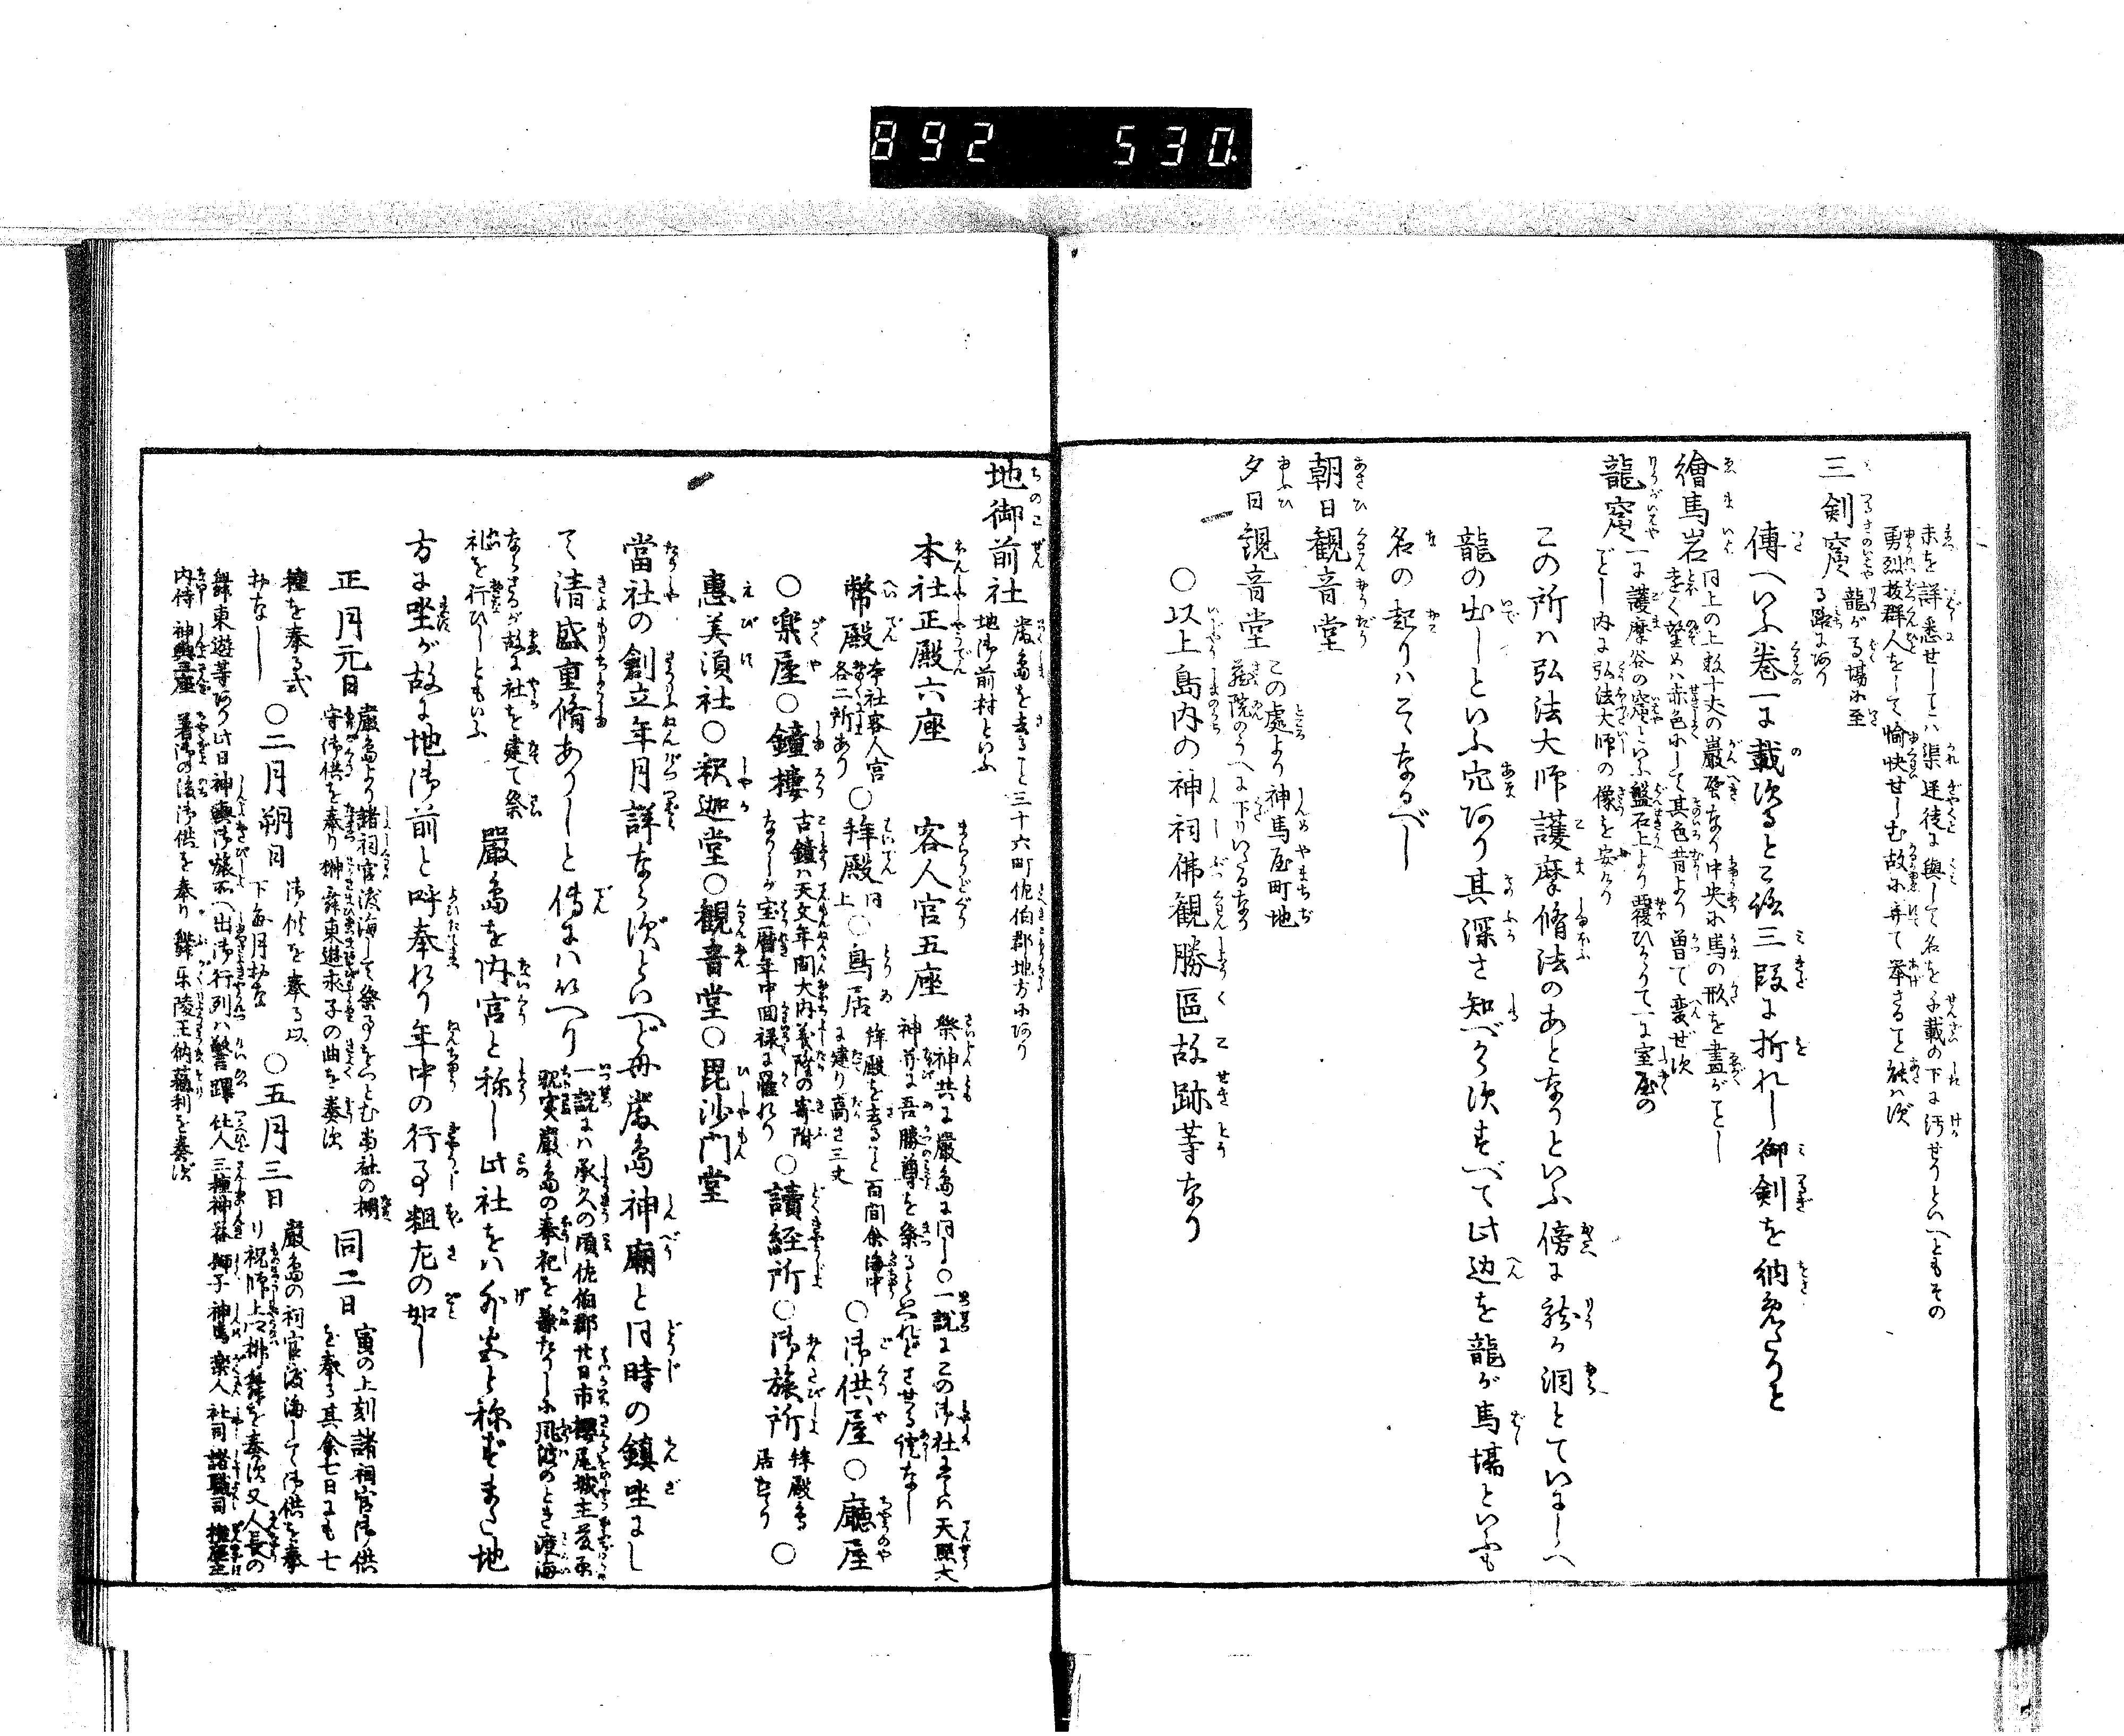 892 530.
未を詳悉せしことハ渠逆徒に與して名を千載の下に汚せりといへともその
勇烈抜群人をして愉快せしむ故に弃て挙さること能ハず
三剣窟 龍がる場に至
る路にあり
傳へいふ巻一に載ることゝ三段に折れし御剣を納めたりと
繪馬岩 同上の上数十丈の巖壁なり中央に馬の形を畫がごとし
遠く望めハ赤色にして其色昔より曽て変ぜず
龍窟 一に護摩谷の窟といふ盤石上より覆ひかゝりて一に室屋の
ごとし内に弘法大師の像を安けり
この所ハ弘法大師護摩脩法のあとなりといふ傍に龍の洞とていにしへ
龍の出しといふ穴あり其深さ知べからずすべて此辺を龍が馬場といふも
名の起りハこゝなるべし
朝日観音堂
夕日観音堂 この處より神馬屋町地
蔵院のうへに下りいたるなり
○以上島内の神祠佛観勝區故跡等なり
地御前社 厳島を去ること三十六町佐伯郡地方にあり
地御前村といふ
本社正殿六座 客人宮五座 祭神共に厳島に同し○一説にこの御社まつる天照大
神前に吾勝尊を祭ると
幣殿 本社客人宮
各二所あり ○拝殿 同
上 ○鳥居 拝殿を去ること百間余海中
に建り高さ三丈 ○御供屋○廳屋
○楽屋○鐘樓 古鐘ハ天文年間大内義隆の寄附
なりしが宝暦年中回禄に罹れり ○讀経所○御旅所 拝殿鳥
居なり ○
惠美須社○釈迦堂○観音堂○毘沙門堂
當社の創立年月詳ならずといへども厳島神廟と同時の鎮坐にし
て清盛重脩ありしと傳にハいへり 一説にハ承久の頃佐伯郡廿日市櫻尾城主
親実厳島の奉祀を兼たりしに風波のとき渡海
ならざるが故に社を建て祭
祀を行ひしともいふ 嚴島を内宮と称し此社をハ外宮と称ずまた地
方に坐が故に地御前と呼奉れり年中の行事粗左の如し
正月元日 厳島より諸祠官渡海して祭事をつとむ当社の棚
守御供を奉り神舞東遊求子の曲を奏す 同二日 寅の上刻諸祠官御供
を奉る其余七日にも七
種を奉る式
おなし ○二月朔日 御供を奉る以
下毎月おな ○五月三日 嚴島の祠官渡海して御供を奉
り祝師上卿神舞を奏す又人長の
舞東遊等あり此日神輿御旅所へ出御行列ハ警蹕 仕人 三種神器 獅子 神馬 楽人 社司 諸職司
内侍 神輿三座 着御の後御供を奉り 舞楽陵王納蘓利を奏す